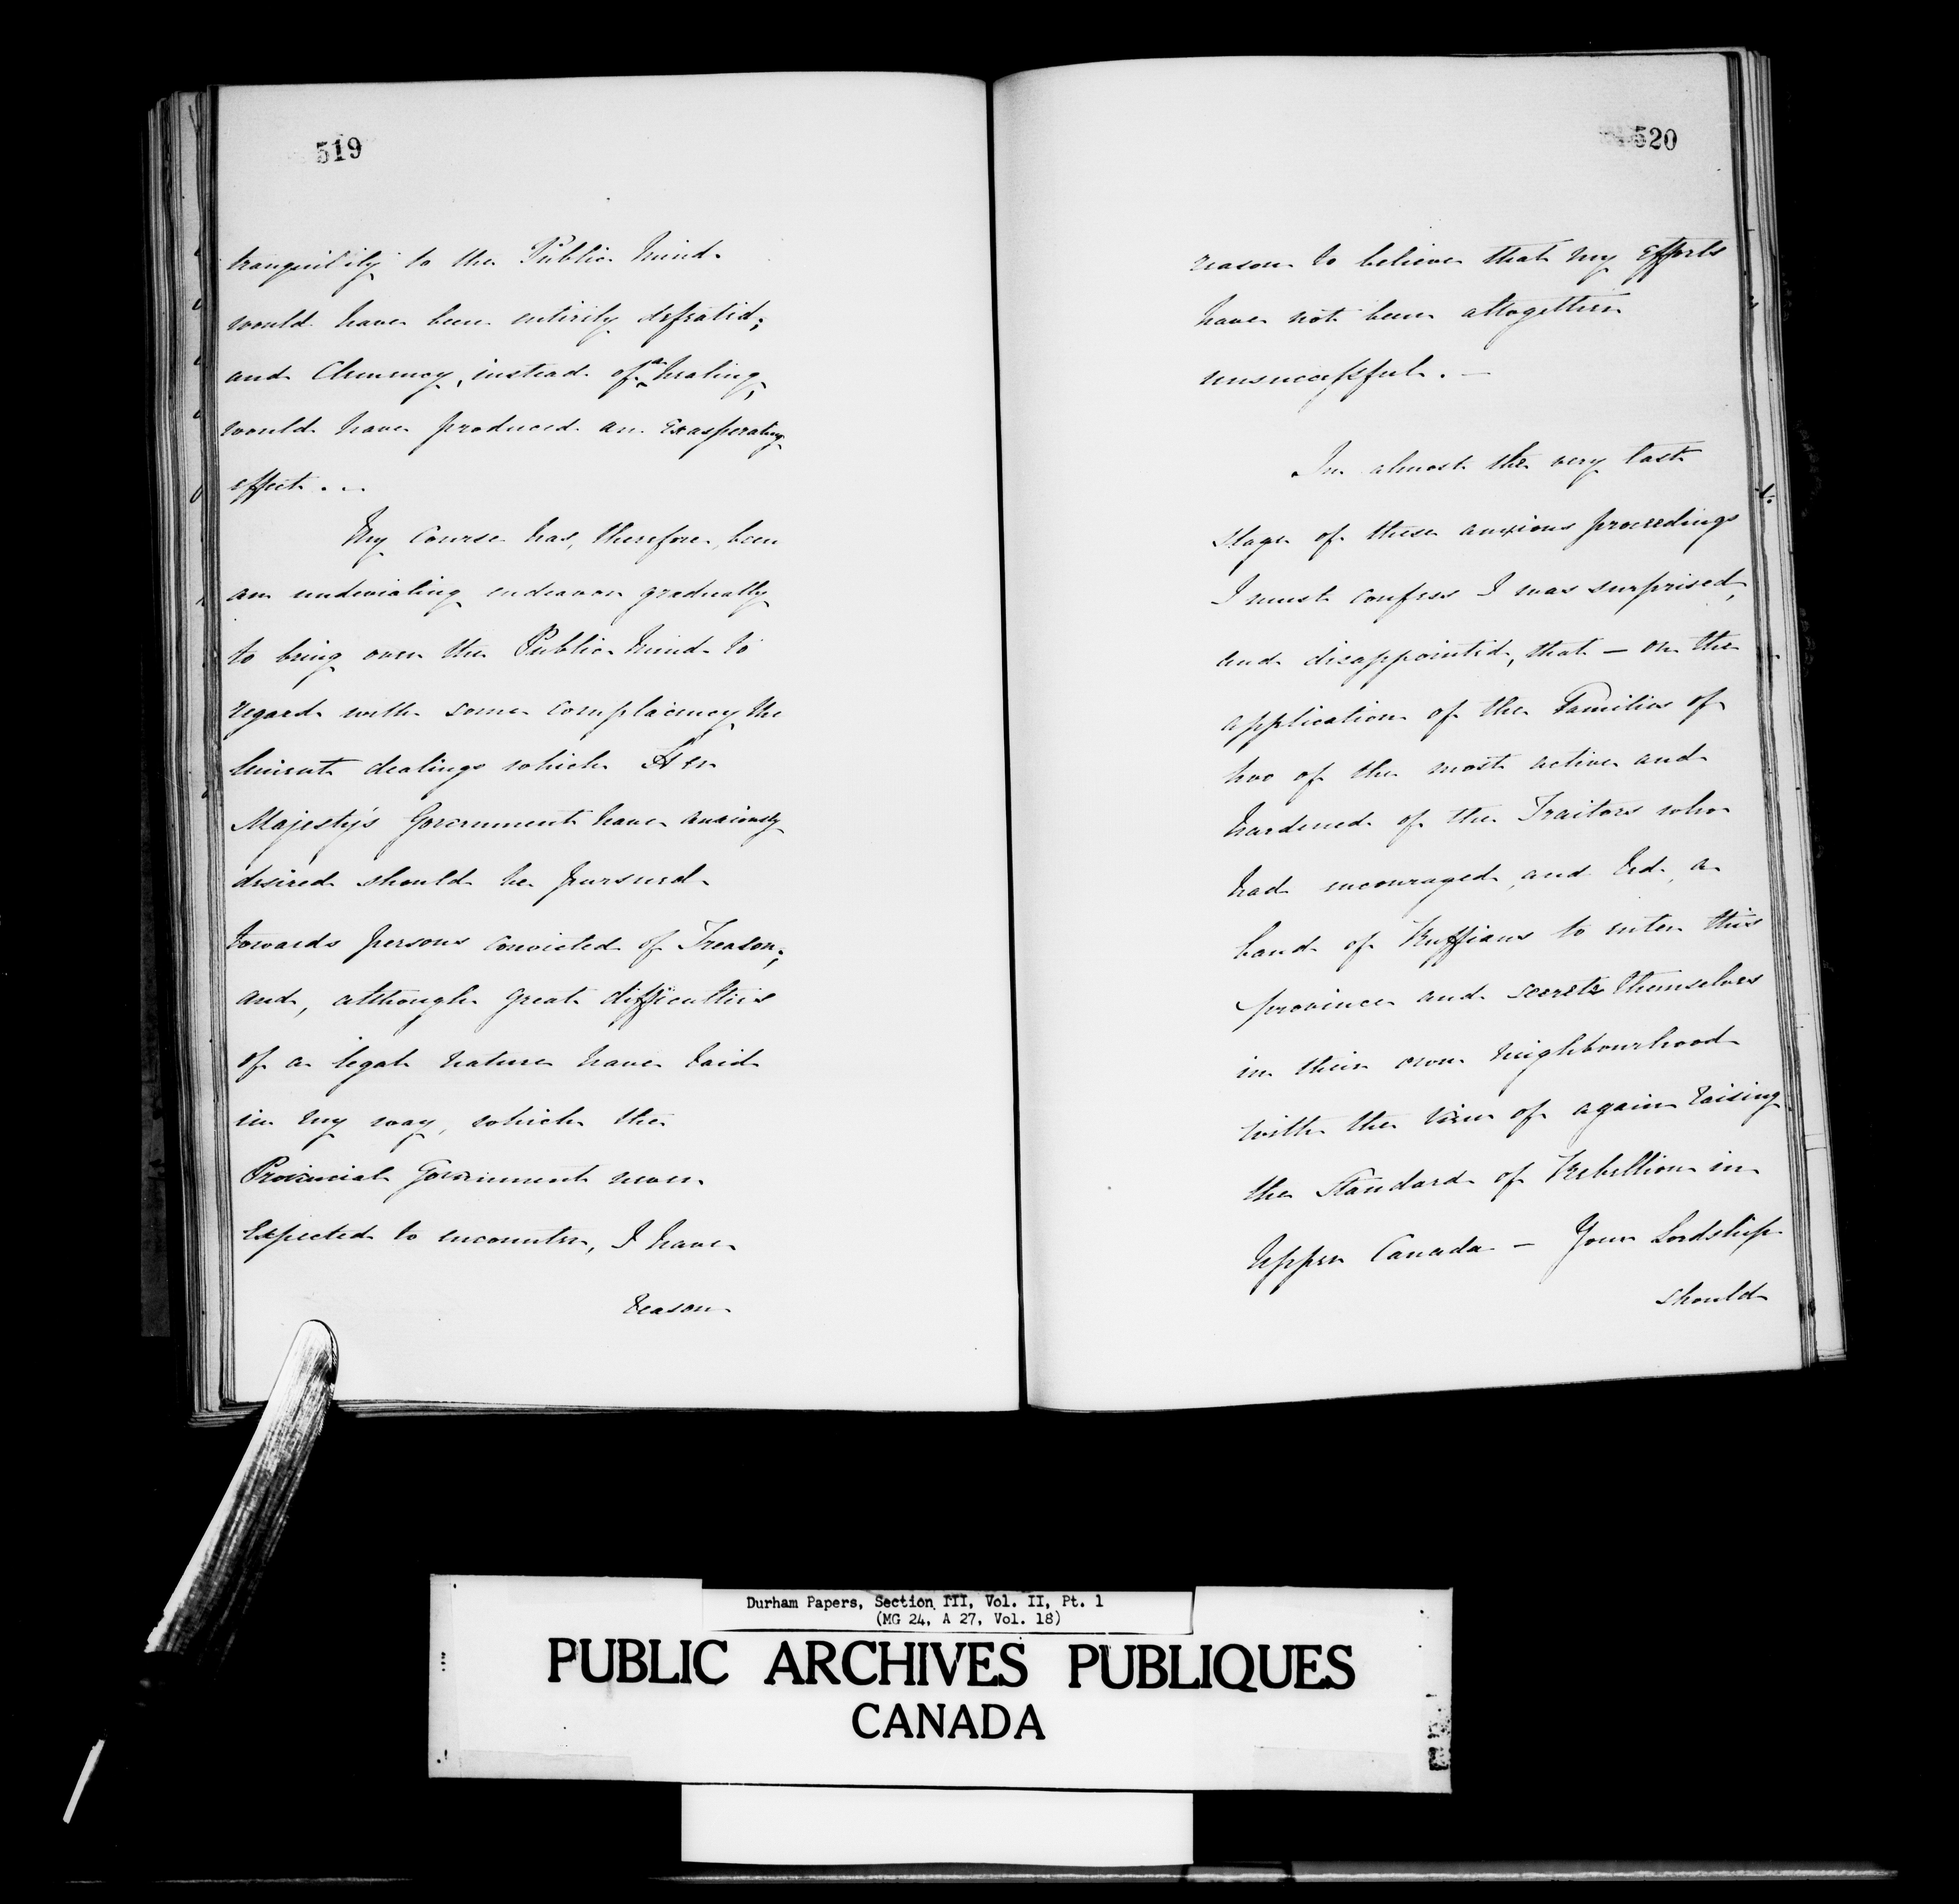 519
tranquility to the Public Mind
would have been entirely defeated;
and Clemency, instead of a healing,
would have produced an Exasperating
effect...
My Course has, therefore, been
an undeviating endeavor gradually
to bring over the Public Mind to
regard with some complacency the
lenient dealings which Her
Majesty's Government have anxiously
desired should be pursued
towards persons convicted of Treason;
and, although great difficulties
of a legal nature have laid
in my way, which the
Provincial Government never
Expected to encounter, I have
reason
520
reason to believe that my Efforts
have not been altogether
unsuccessful. —
In almost the very last
stage of these anxious proceedings
I must confess I was surprised,
and disappointed, that — on the
application of the Families of
two of the most active and
hardened of the Traitors who
had encouraged, and led, a
band of Ruffians to enter this
province and secrete themselves
in their own neighbourhood
with the view of again raising
the Standard of Rebellion in
Upper Canada — Your Lordship
should
Durham Papers, Section III, Vol. II, Pt. 1
(MG 24, A 27, Vol. 18)
PUBLIC ARCHIVES PUBLIQUES
CANADA